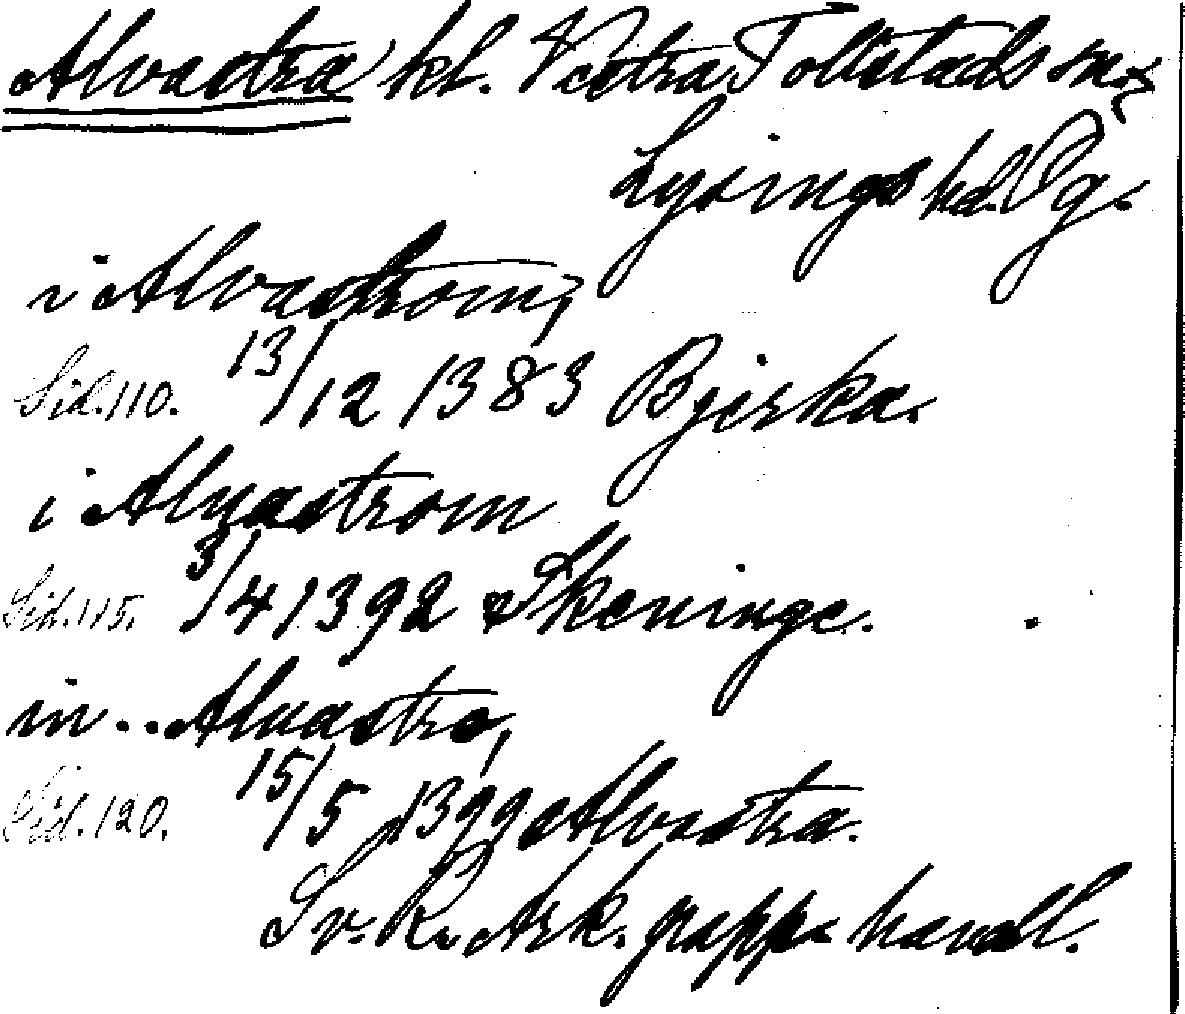 Alvastra kl. Västra Tollstads sn
Lysings hd. Ög.
i Alvastrom,
Sid. 110. 13/12 1383 Bjerka.
i Alvastrom
Sid. 115. 3/4 1392 Skeninge.
in .. Aluastro,
Sid. 120. 15/5 1399 Alvastra.
Sv. R. Ark. papp. handl.